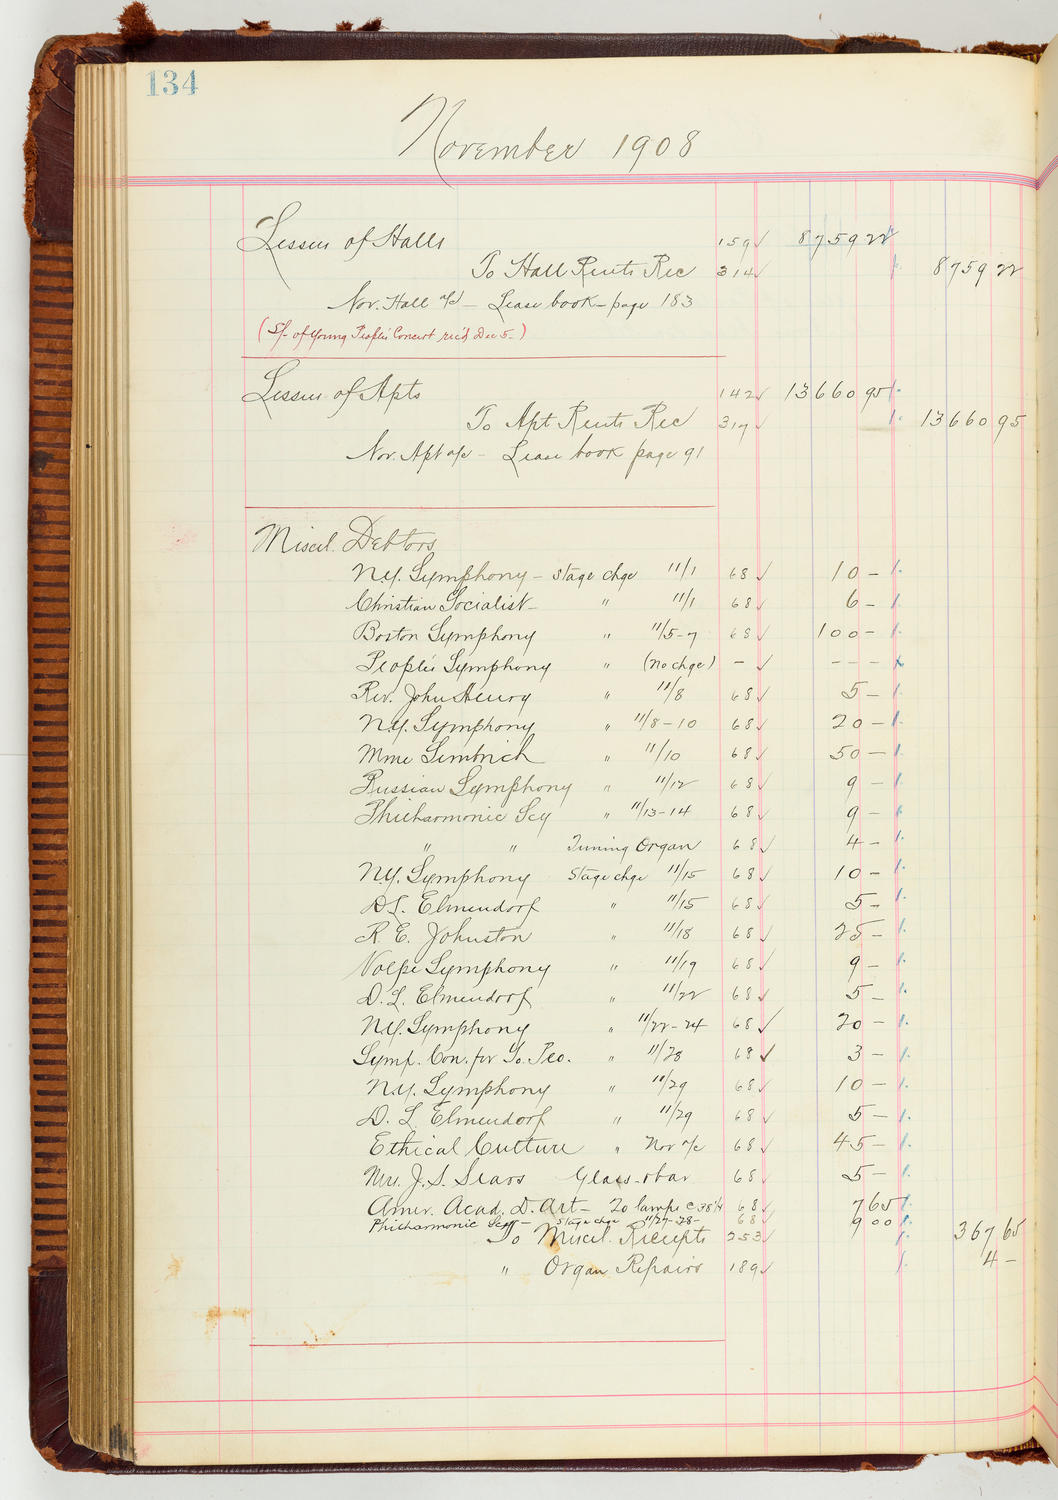 134
November 1908
Lessees of Halls 159 8759 22
To Hall Rents Rec 314 8759 22
Nov. Hall a/c - Lease book - page 183
( of Young People's Concert rec'd Dec 5 - )
Lessees of Apts 142 13660 95
To Apt Rents Rec 317 13660 95
Nov. Apt a/c - Lease book page 91
Miscel. Debtors
N.Y. Symphony - Stage chge 11/1 68 10 -
Christian Socialist - " 11/1 68 6 -
Boston Symphony " 11/5-7 68 100 -
People's Symphony " (no chge) - - - -
Rev. John Henry " 11/8 68 5 -
N.Y. Symphony " 11/8-10 68 20 -
Mme Sembrich " 11/10 68 50 -
Russian Symphony " 11/12 68 9 -
Philharmonic Scy " 11/13-14 68 9 -
" " Tuning Organ 68 4 -
N.Y. Symphony Stage chge 11/15 68 10 -
D.L. Elmendorf " 11/15 68 5 -
R. E. Johnston " 11/18 68 25 -
Volpe Symphony " 11/19 68 9 -
D. L. Elmendorf " 11/22 68 5 -
N.Y. Symphony " 11/22-24 68 20 -
Symp. Con. for Yo. Peo. " 11/28 68 3 -
N.Y. Symphony " 11/29 68 10 -
D. L. Elmendorf " 11/29 68 5 -
Ethical Culture " Nov a/c 68 45 -
Mrs. J. S. Sears Glass - 68 5 -
Amer. Acad. D. Art - 20 lamps @ 38 1/4 68 7 65
Philharmonic Scy - Stage chge 11/27-28 - 68 9 00
To Miscel. Receipts 253 367 65
" Organ Repairs 189 4 -